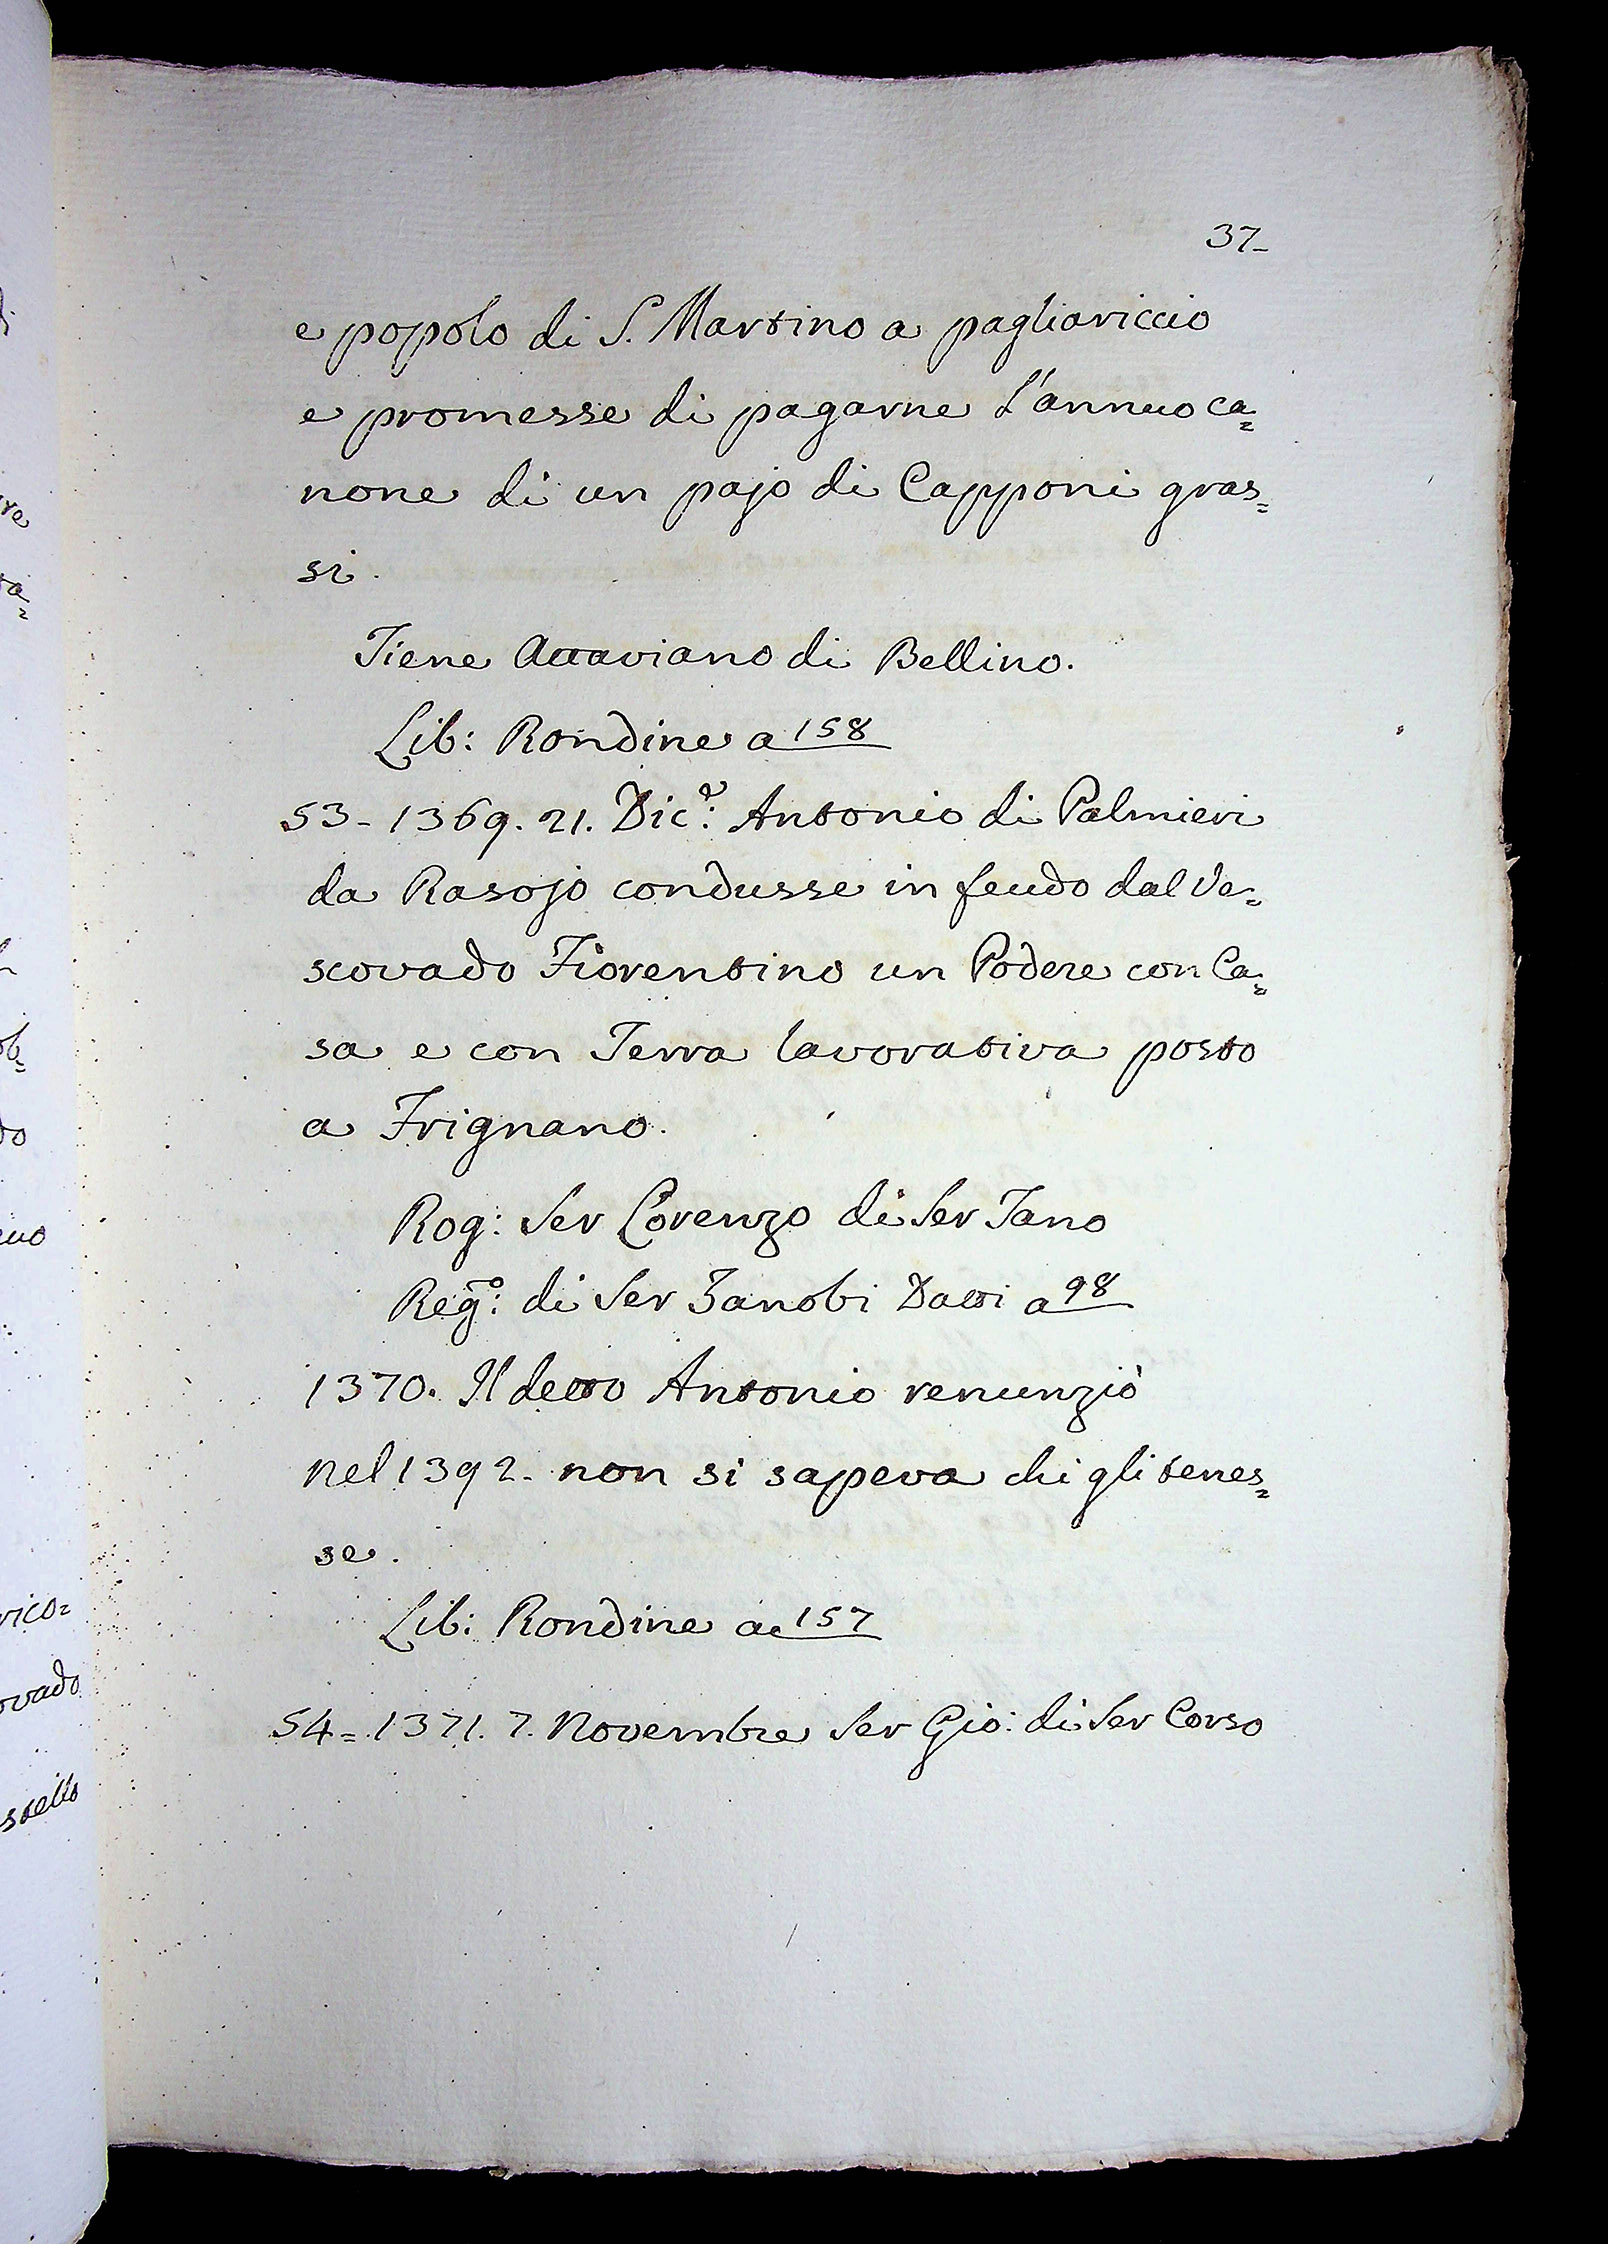 37-
e popolo di S. Martino a pagliariccio
e promesse di pagarne l'annuo ca=
none di un pajo di Capponi gras=
si.
Tiene Attaviano di Bellino.
Lib: Rondine a 158
53- 1369. 21. Dic.e Antonio di Palmieri
da Rasojo condusse in feudo dal Ve=
scovado Fiorentino un Podere con Ca=
sa e con Terra lavorativa posto
a Frignano.
Rog: Ser Lorenzo di Ser Tano
Reg.o: di Ser Zanobi Datti a 98
1370. Il detto Antonio renunziò
nel 1392. non si sapeva chi gli tenes=
se.
Lib: Rondine a 157
54= 1371. 7. Novembre Ser Gio: di Ser Corso